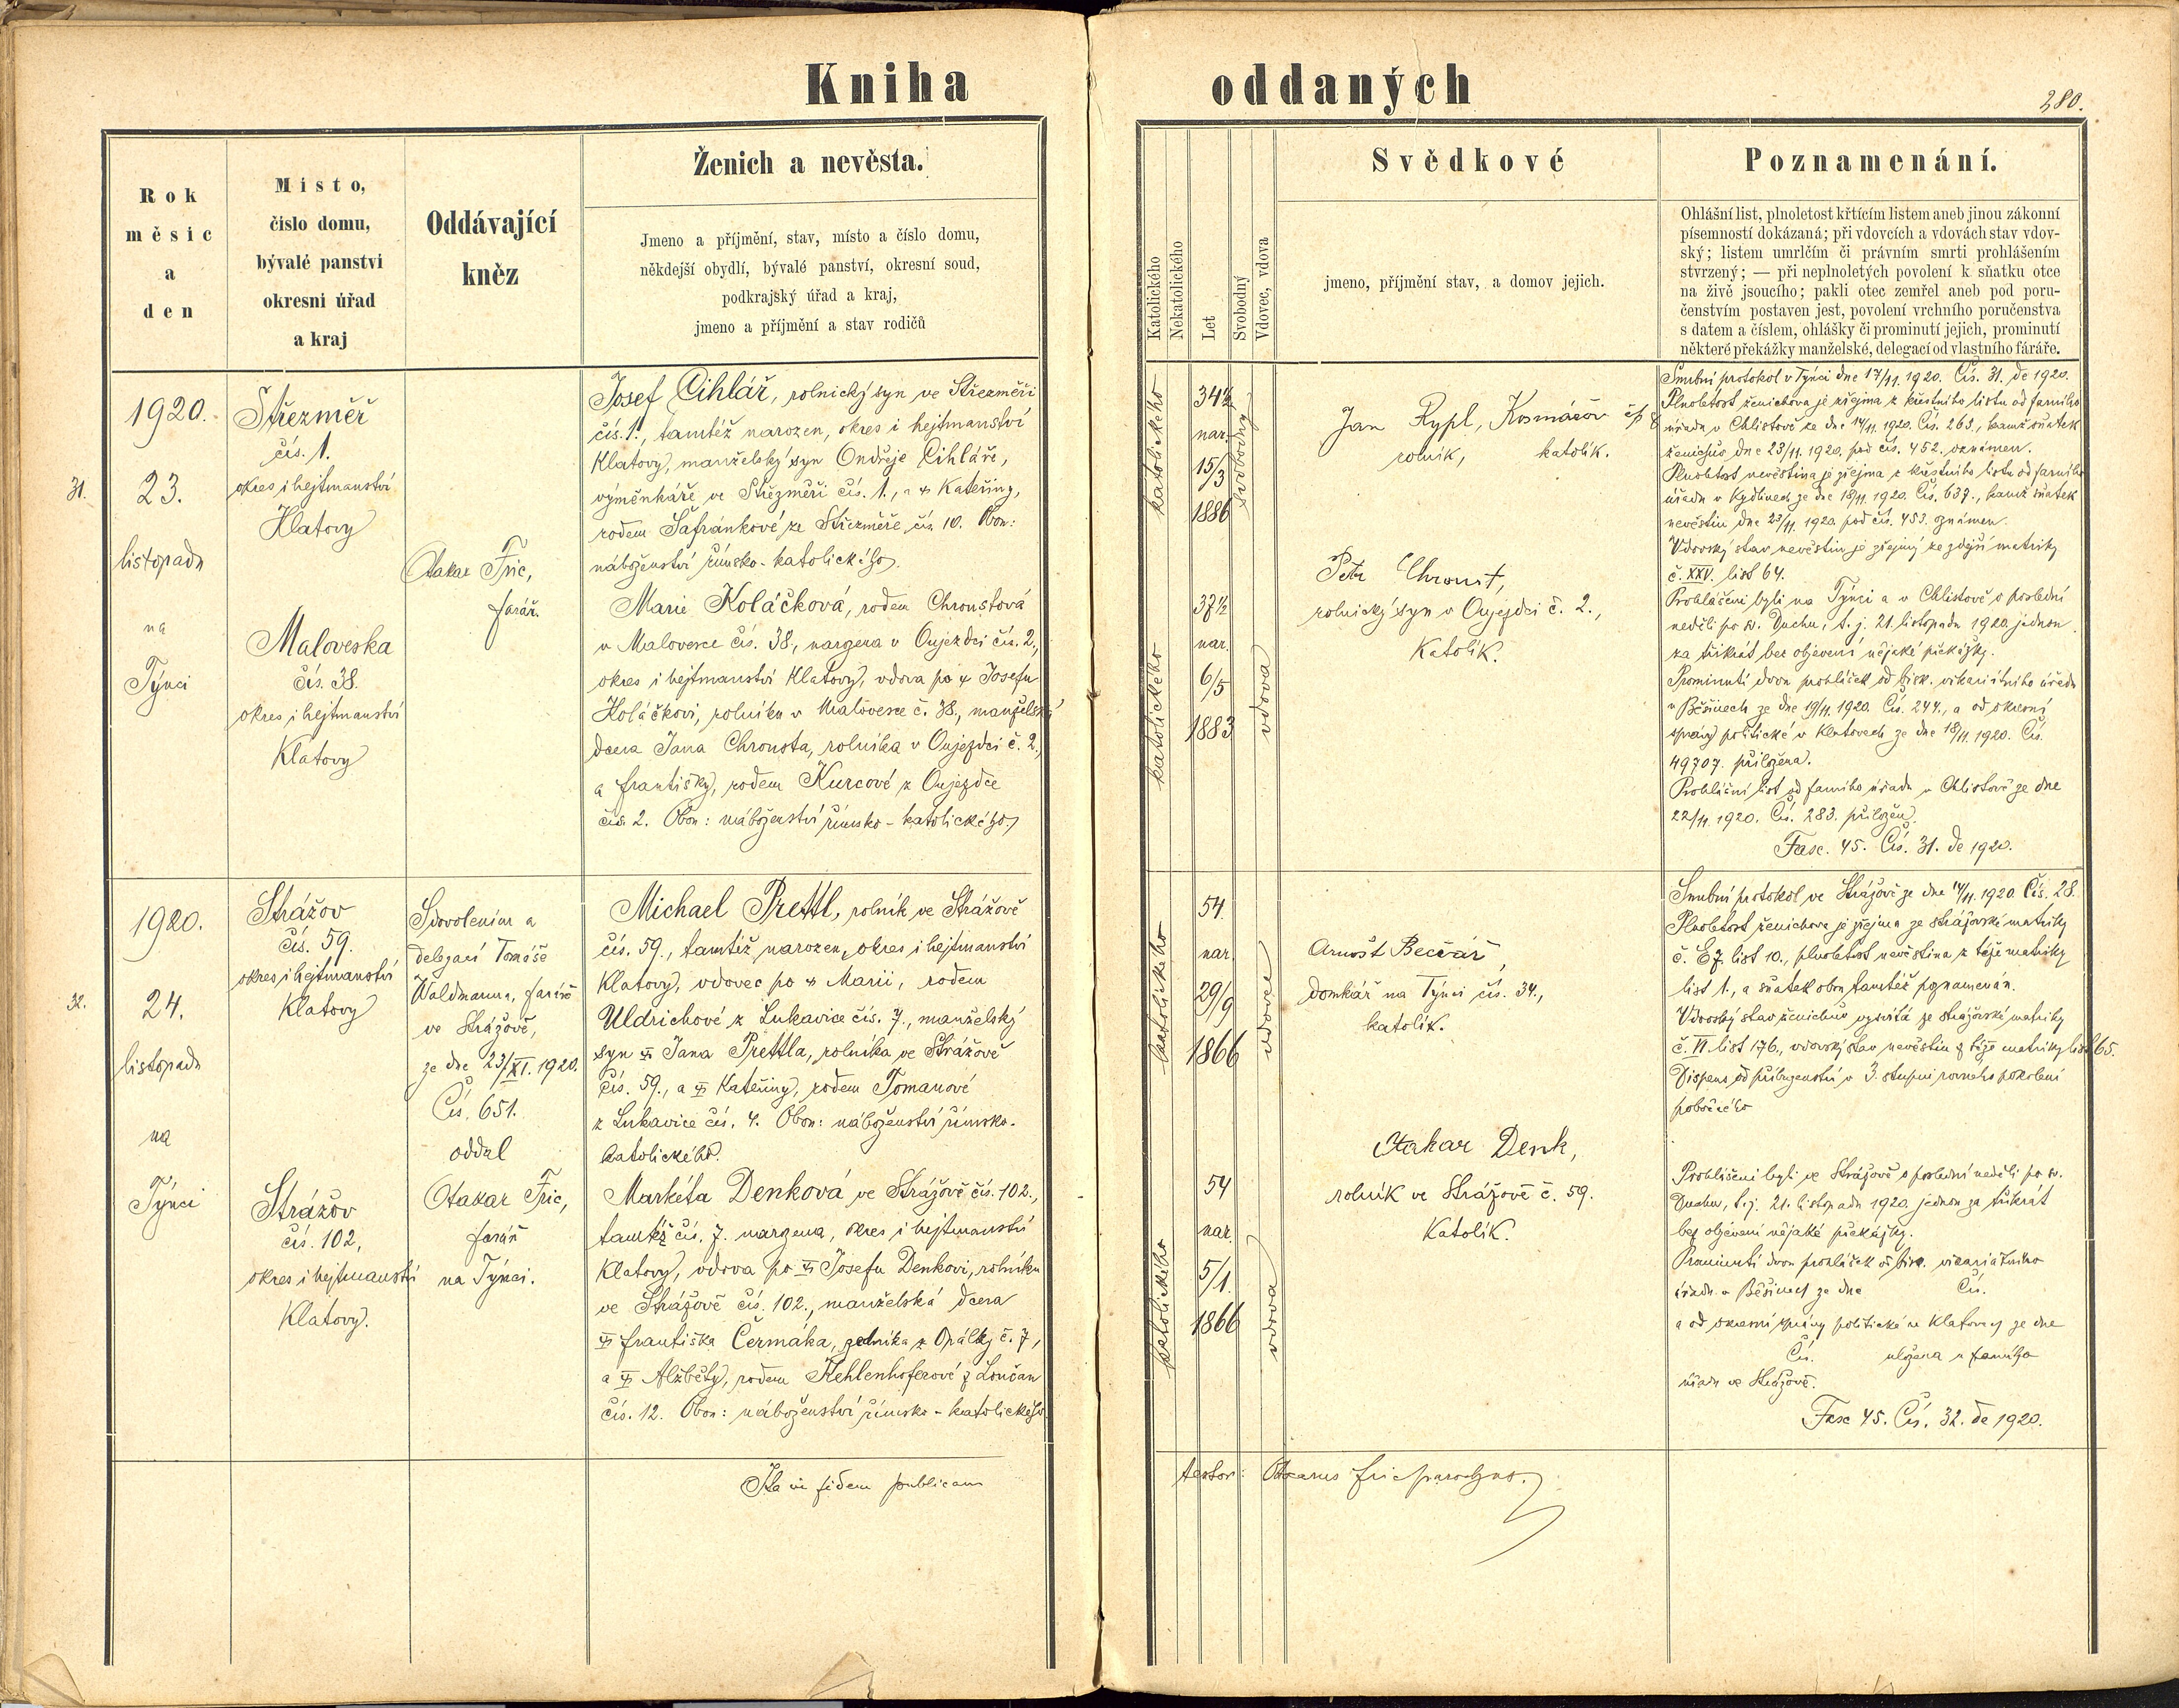 Kniha oddaných
280.
Rok
měsíc
a
den
Místo,
číslo domu,
bývalé panství
okresní úřad
a kraj
Oddávající
kněz
Ženich a nevěsta.
Jmeno a příjmění, stav, místo a číslo domu,
někdejší obydlí, bývalé panství, okresní soud,
podkrajský úřad a kraj,
jmeno a příjmění a stav rodičů
Katolického
Nekatolického
Let
Svobodný
Vdovec, vdova
Svědkové
jmeno, příjmění stav, a domov jejich.
Poznamenání.
Ohlášní list, plnoletost křtícím listem aneb jinou zákonní
písemností dokázaná; při vdovcích a vdovách stav vdov-
ský; listem umrlčím či právním smrti prohlášením
stvrzený; — při neplnoletých povolení k sňatku otce
na živě jsoucího; pakli otec zemřel aneb pod poru-
čenstvím postaven jest, povolení vrchního poručenstva
s datem a číslem, ohlášky či prominutí jejich, prominutí
některé překážky manželské, delegací od vlastního faráře.
31.
1920.
23.
listopadu
na
Týnci
Střezměř
čís. 1.
okres i hejtmanství
Klatovy
Maloveska
čís. 38.
okres i hejtmanství
Klatovy
Otakar Fric,
farář.
Josef Cihlář, rolnický syn ve Střezměři
čís. 1., tamtéž narozen, okres i hejtmanství
Klatovy, manželský syn Ondřeje Cihláře,
výměnkáře ve Střezměři čís. 1., a † Kateřiny,
rodem Šafránkové ze Střezměře čís. 10. Obou:
náboženství římsko-katolického.
Marie Koláčková, rodem Chroustová
v Malovesce čís. 38., narozena v Oujezdci čís. 2.,
okres i hejtmanství Klatovy, vdova po † Josefu
Koláčkovi, rolníku v Malovesce č. 38., manželská
dcera Jana Chrousta, rolníka v Oujezdci č. 2.,
a Františky, rodem Kurcové z Oujezdce
čís. 2. Obou: náboženství římsko-katolického
katolického
34½
nar.
15/3
1886
svobodný
katolického
37½
nar.
6/5
1883
vdova
Jan Rypl, Komárov čp 8
rolník, katolík.
Petr Chroust,
rolnický syn v Oujezdci č. 2.,
Katolík.
Snubní protokol v Týnci dne 17/11. 1920. Čís. 31. de 1920.
Plnoletost ženichova je zřejma z křestního listu od farního
úřadu v Chlistově ze dne 14/11. 1920. Čís. 263., kamž sňatek
ženichův dne 23/11. 1920. pod čís. 452. oznámen.
Plnoletost nevěstina je zřejma z křestního listu od farního
úřadu v Kydlinech ze dne 18/11. 1920. Čís. 637., kamž sňatek
nevěstin dne 23/11. 1920. pod čís. 453. oznámen.
Vdovský stav nevěstin je zřejmý ze zdejší matriky
č. XXV. list 64.
Prohlášeni byli na Týnci a v Chlistově o poslední
neděli po sv. Duchu, t. j. 21. listopadu 1920 jednou
za třikrát bez objevení nějaké překážky.
Prominutí dvou prohlášek od bisk. vikariátního úřadu
v Běšinech ze dne 19/11. 1920. Čís. 244., a od okresní
správy politické v Klatovech ze dne 18/11. 1920. Čís.
49707. přiložena.
Prohlášní list od farního úřadu v Chlistově ze dne
22/11. 1920. Čís. 283. přiložen.
Fasc. 45. Čís. 31. de 1920.
32.
1920.
24.
listopadu
na
Týnci
Strážov
čís. 59.
okres i hejtmanství
Klatovy
Strážov
čís. 102,
okres i hejtmanství
Klatovy.
S dovolením a
delegací Tomáše
Waldmanna, faráře
ve Strážově,
ze dne 23/XI. 1920.
Čís. 651.
oddal
Otakar Fric,
farář
na Týnci.
Michael Prettl, rolník ve Strážově
čís. 59., tamtéž narozen, okres i hejtmanství
Klatovy, vdovec po † Marii, rodem
Uldrichové z Lukavice čís. 7., manželský
syn † Jana Prettla, rolníka ve Strážově
čís. 59., a † Kateřiny, rodem Tomanové
z Lukavice čís. 4. Obou: náboženství římsko-
katolického.
Markéta Denková ve Strážově čís. 102.,
tamtéž čís. 7. narozena, okres i hejtmanství
Klatovy, vdova po † Josefu Denkovi, rolníku
ve Strážově čís. 102., manželská dcera
† Františka Čermáka, zedníka z Opálky č. 7,
a † Alžběty, rodem Kehlenhoferové z Loučan
čís. 12. Obou: náboženství římsko-katolického
katolického
54.
nar.
29/9
1866
vdovec
katolického
54
nar.
5/1.
1866
vdova
Arnošt Bečvář,
domkář na Týnci čís. 34.,
katolík.
Otakar Denk,
rolník ve Strážově č. 59.
Katolík.
Snubní protokol ve Strážově ze dne 14/11. 1920. Čís. 28.
Plnoletost ženichova je zřejma ze strážovské matriky
list 10., plnoletost nevěstina z téže matriky
list 1., a sňatek obou tamtéž poznamenán.
Vdovský stav ženichův vysvítá ze strážovské matriky
č. VI. list 176., vdovský stav nevěstin z téže matriky list 65.
Dispens od příbuzenství v 3. stupni rovného pokolení
pobočného
Prohlášeni byli ve Strážově o poslední neděli po sv.
Duchu, t. j. 21. listopadu 1920 jednou za třikrát
bez objevení nějaké překážky.
Prominutí dvou prohlášek od bisk. vikariátního
úřadu v Běšinech ze dne Čís.
a od okresní správy politické v Klatovech ze dne
Čís. uložena u farního
úřadu ve Strážově.
Fasc 45. Čís. 32. de 1920.
Ita in fidem publicam
testor: Otocarus Fric parochus.